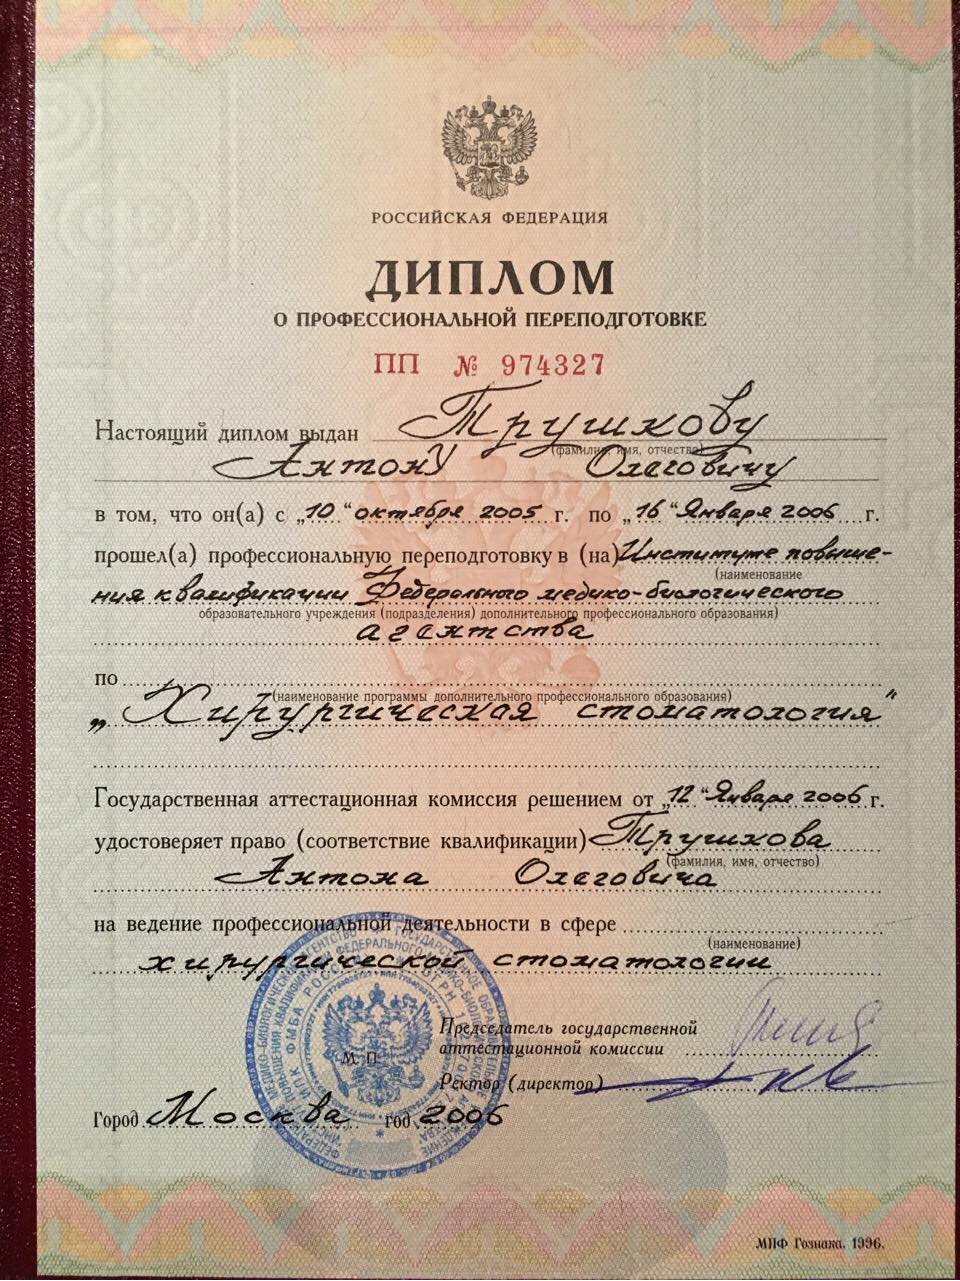 РОССИЙСКАЯ ФЕДЕРАЦИЯ
ДИПЛОМ
О ПРОФЕССИОНАЛЬНОЙ ПЕРЕПОДГОТОВКЕ
ПП № 974327
Настоящий диплом выдан Трушкову
(фамилия, имя, отчество)
Антону Олеговичу
в том, что он(а) с „10“ октября 2005 г. по „16“ Января 2006 г.
прошел(а) профессиональную переподготовку в (на) Институте повыше-
(наименование
ния квалификации Федерального медико-биологического
образовательного учреждения (подразделения) дополнительного профессионального образования)
агентства
по
(наименование программы дополнительного профессионального образования)
„Хирургическая стоматология“
Государственная аттестационная комиссия решением от „12“ Января 2006 г.
удостоверяет право (соответствие квалификации) Трушкова
(фамилия, имя, отчество)
Антона Олеговича
на ведение профессиональной деятельности в сфере
(наименование)
хирургической стоматологии
Председатель государственной
аттестационной комиссии
М. П.
Ректор (директор)
Город Москва год 2006
МПФ Гознака. 1996.